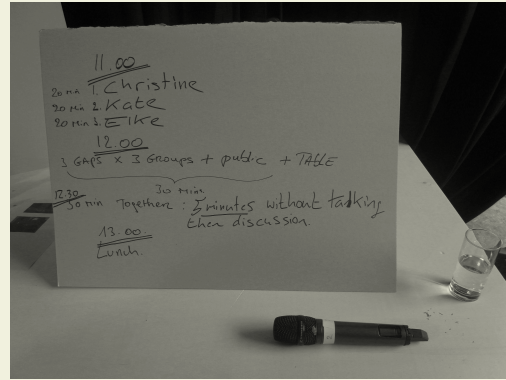 11.00
20 min 1. Christine
20 min 2. Kate
20 min 3. Elke
12.00
3 GAPS x 3 GROUPS + public + TABLE
30 min
12.30
30 min Together : 5 minutes without talking
then discussion.
13.00.
Lunch.